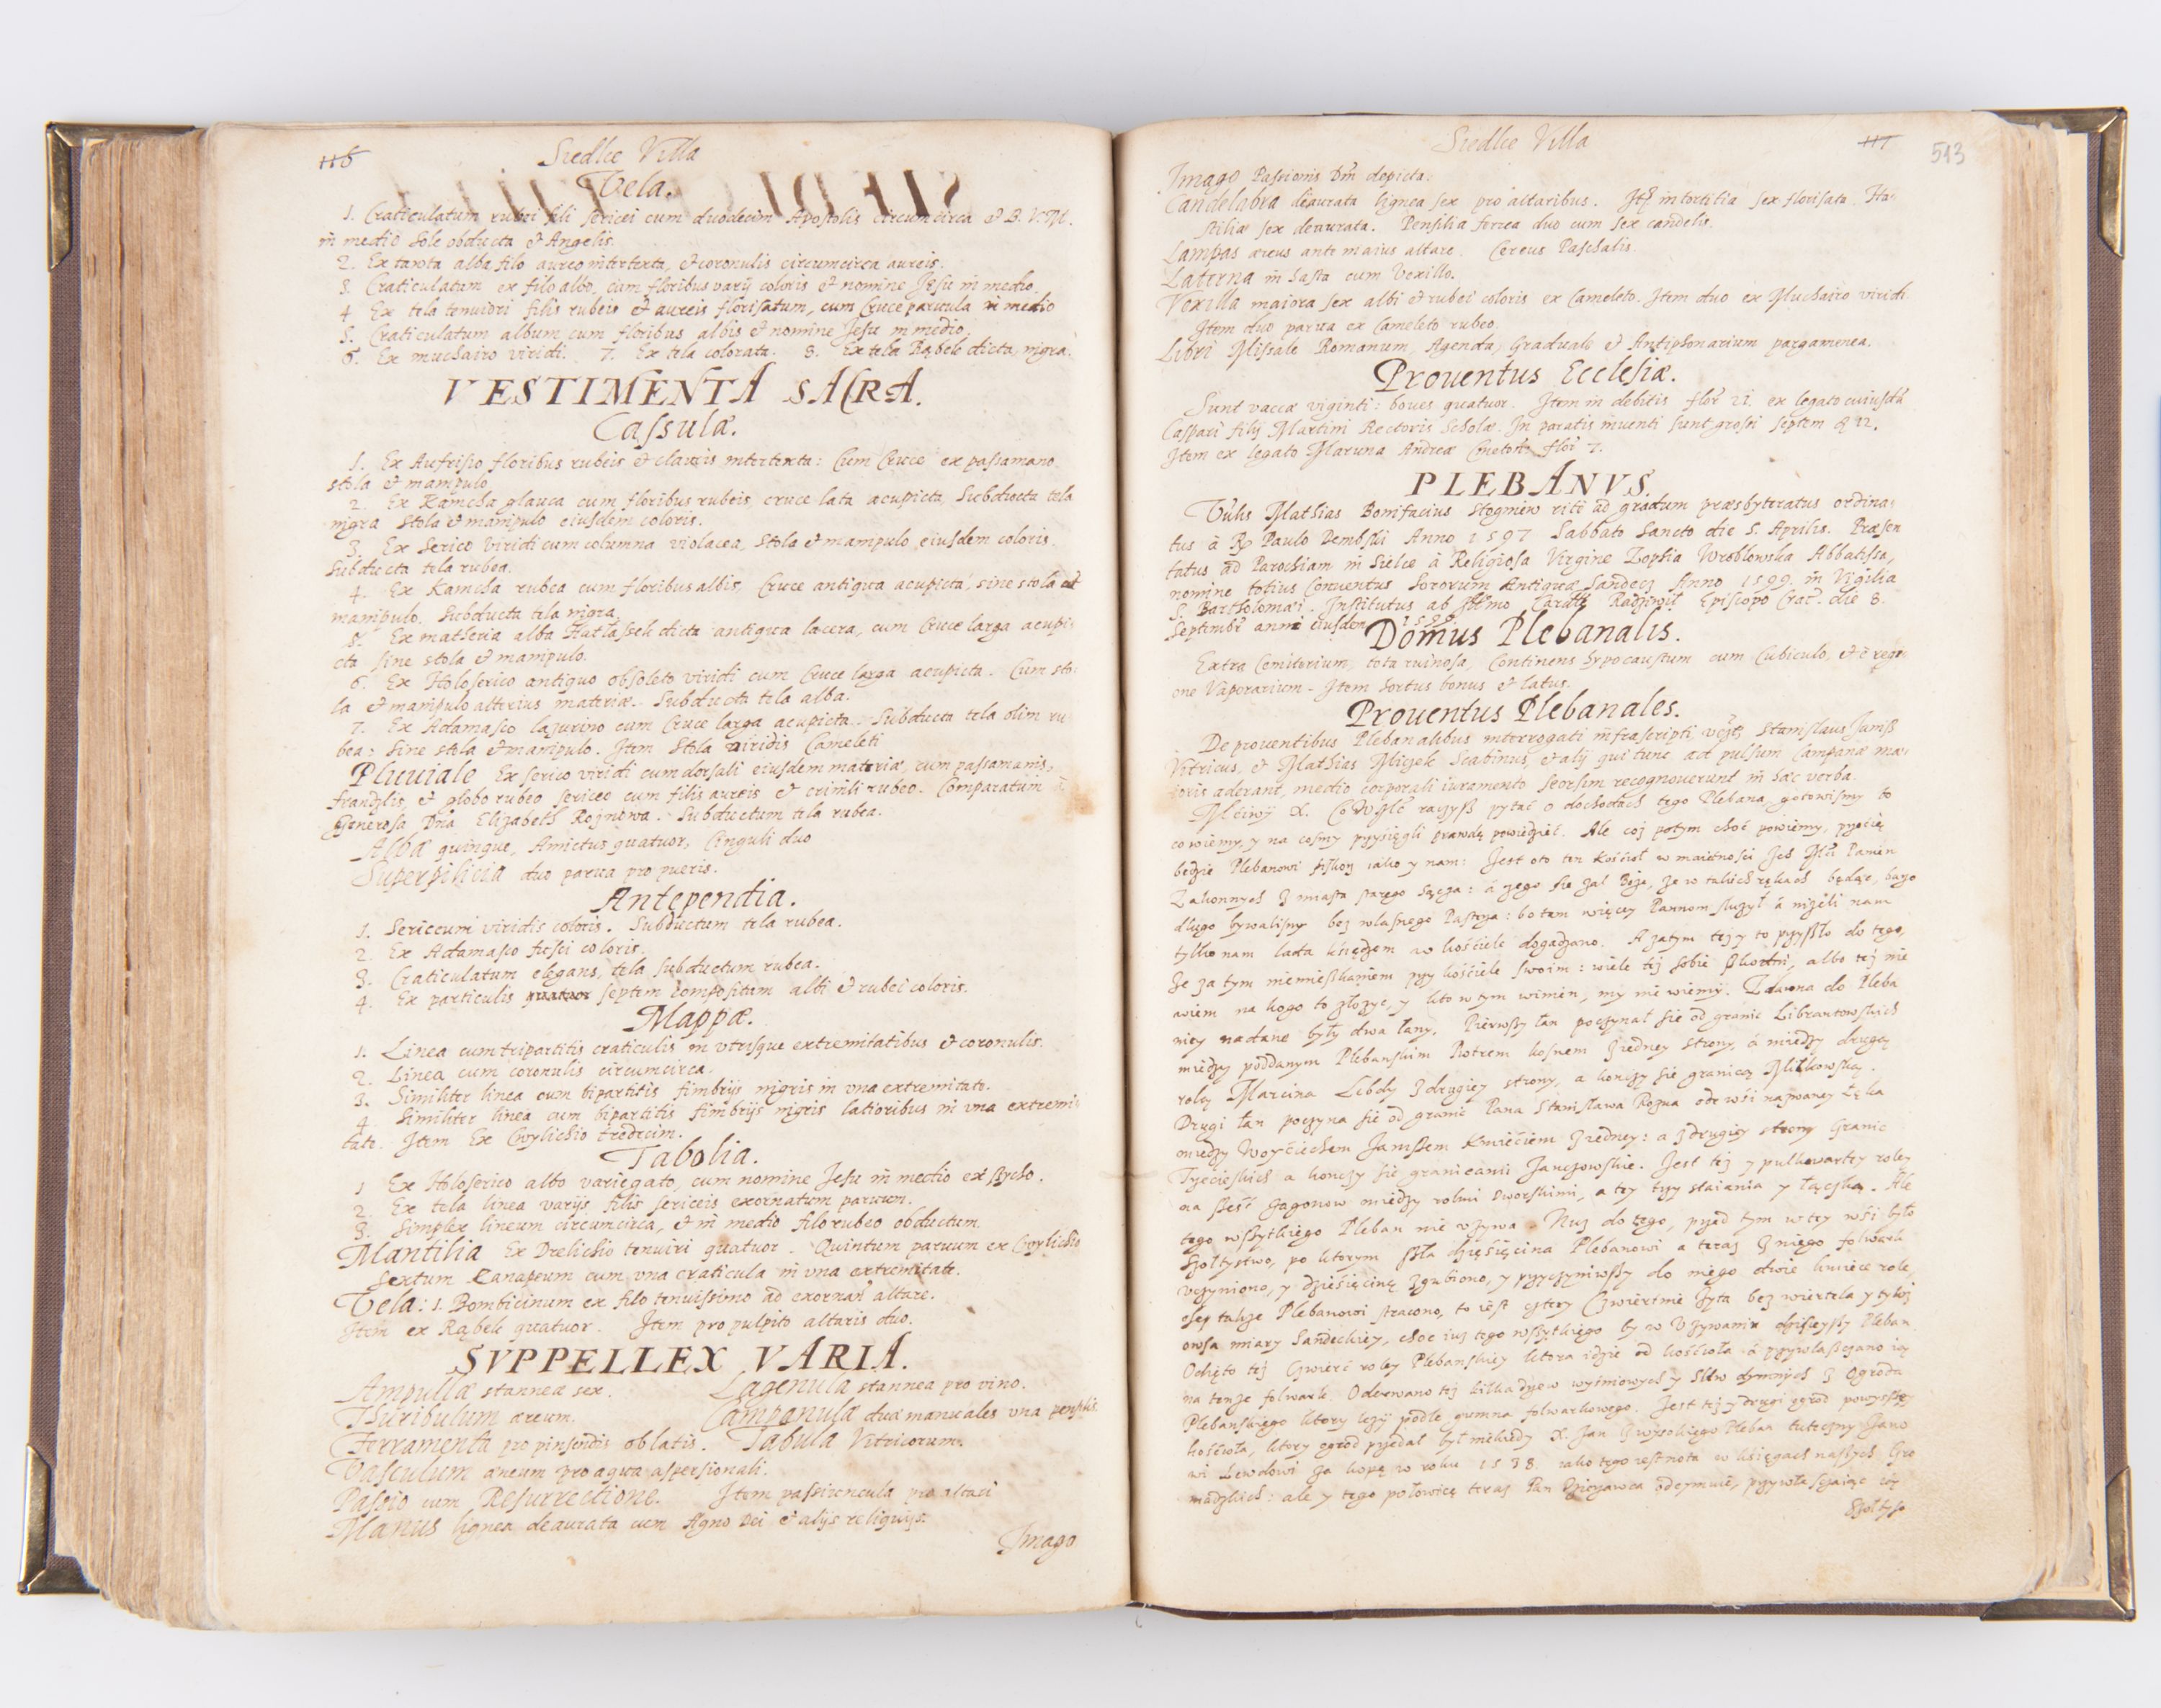 116
Siedlce Villa
Vela.
1. Craticulatum rubei fili sericei cum duodecim Apostolis circumcirca et B. V. M.
in medio Sole obducta et Angelis.
2. Ex tawta alba filo aureo intertexta, et coronulis circumcirca aureis.
3. Craticulatum ex filo albo, cum floribus varij coloris et nomine Jesu in medio.
4 Ex tela tenuiori filis rubeis et aureis florisatum, cum Cruce paruula in medio
5. Craticulatum album cum floribus albis et nomine Jesu in medio.
6. Ex muchairo viridi. 7. Ex tela colorata. 8. Ex tela Rąbek dicta, nigra.
VESTIMENTA SACRA.
Cassulæ.
1. Ex Aufrisio floribus rubeis et intertexta: Cum Cruce ex passamano.
stola et manipulo
2. Ex Kamcha glauca cum floribus rubeis, cruce lata acupicta, Subducta tela
nigra Stola et manipulo eiusdem coloris.
3. Ex Serico viridi cum columna violacea, Stola et manipulo eiusdem coloris.
Subducta tela rubea.
4. Ex Kamcha rubea cum floribus albis, Cruce antiqua acupicta, sine stola et
manipulo. Subducta tela nigra.
5. Ex matheria alba Hatłassek dicta antiqua lacera, cum Cruce larga acupi:
cta sine stola et manipulo.
6. Ex Holoserico antiquo obsoleto viridi cum Cruce larga acupicta. Cum sto:
la et manipulo alterius materiæ. Subducta tela alba.
7. Ex Adamasco lazurino cum Cruce larga acupicta. Subducta tela olim ru
bea: Sine stola et manipulo. Item Stola viridis Cameleti
Pluuiale Ex serico viridi cum dorsali eiusdem materiæ, cum passamanis,
frandzlis, et globo rubeo sericeo cum filis aureis et rubeo. Comparatum à
Generosa Dna Elizabeth Roznowa. Subductum tela rubea.
Albæ quinque, Amictus quatuor, Cinguli duo
Superpilicia duo parua pro pueris.
Antependia.
1. Sericeum viridis coloris. Subductum tela rubea.
2. Ex Adamasco fusci coloris.
3. Craticulatum elegans, tela subductum rubea.
4. Ex particulis quatuor septem compositum albi et rubei coloris.
Mappæ.
1. Linea cum tripartitis craticulis in vtrisque extremitatibus et coronulis.
2. Linea cum coronulis circumcirca.
3. Similiter linea cum bipartitis fimbrijs nigris in vna extremitate.
4 Similiter linea cum bipartitis fimbrijs nigris latioribus in vna extremi:
tate. Item Ex Cwylichio tredecim.
Tabolia.
1 Ex Holoserico albo variegato, cum nomine Jesu in medio
2. Ex tela linea varijs filis sericeis exornatum paruum.
3. Simplex lineum circumcirca, et in medio filo rubeo obductum.
Mantilia Ex Drelichio tenuiri quatuor. Quintum paruum ex Cwylichio
Sextum Canapeum cum vna craticula in vna extremitate.
Vela: 1. Bombicinum ex filo tenuissimo ad altare.
Item ex Rąbek quatuor. Item pro pulpito altaris duo.
SVPPELLEX VARIA.
Ampullæ stanneæ sex. Lagenula stannea pro vino.
Thuribulum æreum. Campanulæ duæ manuales vna pensilis
Ferramenta pro pinsendis oblatis. Tabula Vitricorum.
Vasculum æneum pro aqua aspersionali.
Passio cum Resurrectione. Item pro altari
Manus lignea deaurata cum Agno Dei et alijs reliquijs.
Imago
Siedlce Villa
117
513
Imago Passionis Dni depicta.
Candelabra deaurata lignea sex pro altaribus. Itę intortitia sex florisata. Ha:
stiliæ sex deaurata. Pensilia ferrea duo cum sex candelis.
Lampas æreus ante maius altare. Cereus Paschalis.
Laterna in hasta cum Vexillo.
Vexilla maiora sex albi et rubei coloris ex Cameleto. Item duo ex Muchairo viridi
Item duo parua ex Cameleto rubeo.
Libri Missale Romanum, Agenda, Graduale et Antiphonarium pargamenea.
Prouentus Ecclesiæ.
Sunt vaccæ viginti: boues quatuor. Item in debitis flor 21. ex legato cuiusdã
Caspari filij Martini Rectoris Scholæ. In paratis inuenti sunt grossi septem 12.
Item ex legato Andreæ flor 7.
PLEBANVS.
Mathias Bonifacius riti ad gradum præsbyteratus ordina:
tus à Paulo Dembski Anno 1597 Sabbato Sancto die 5. Aprilis. Præsen
tatus ad Parochiam in Sielce à Religiosa Virgine Zophia Wroblowska Abbatissa,
nomine totius Conuentus Sororum Antiquæ Sandecz Anno 1599. in Vigilia
S. Bartholomæi. Institutus ab Radziwił Episcopo Crac. die 8.
Septembr anni eiusdem 1599.
Domus Plebanalis.
Extra Cemiterium, tota ruinosa, Continens hypocaustum cum Cubiculo, et è regi
one Vaporarium. Item hortus bonus et latus.
Prouentus Plebanales.
De prouentibus Plebanalibus interrogati infrascripti Stanislaus Janiß
Vitricus, et Mathias Miczek Scabinus, et alij qui tunc ad pulsum Campanæ ma:
ioris aderant, medio corporali iuramento seorsim recognouerunt in hæc verba.
Mciwy X. raczyß pytać o dochodach tego Plebana, gotowismy to
co wiemy, y na cosmy przysięgli prawdę powiedzieć. Ale coz potym choć powiemy, przecię
będzie Plebanowi iako y nam: Jest oto ten Kościoł w maiętnosci Ich Mci Panien
Zakonnych z miasta starego Sącza: á zego się zal Boże, że w takich rękach będąc, barzo
długo bywalismy bez własnego Pastyrza: bo tam więcey Pannom służył á niżeli nam
tylko nam lada księdzem w kościele dogadzano. A zatym też y to przyßło do tego,
że za tym niemießkaniem przy kościele swoim: wiele tej sobie albo tej nie
wiem na kogo to złożyć, y kto w tym winien, my nie wiemy. Zdawna do Pleba
niey nadane były dwa łany. Pierwßy łan poczynał się od granic Librantowskich
między poddanym Plebanskim Piotrem z iedney strony, á miedzy drugą
rolą Marcina Lebdy z drugiey strony, a konczy się granicą Miłkowską.
Drugi łan poczyna się od granic Pana Stanisława Rozna ode wsi nazwaney Łęka
miedzy Woyciechem Janißem Kmieciem z iedney: a z drugiey strony Granic
Trzecieskich a konczy się granicami Janczowskie. Jest tej y pułkwarty roley
na ßesć zagonow miedzy rolmi Dworskimi, a tey trzy staiania y łączka. Ale
tego wßytkiego Pleban nie vzywa. Nuz do tego, przed tym w tey wsi było
Szoltystwo, po ktorym ßła dziesięcina Plebanowi a teraz z niego folwark
vczyniono, y dziesięcinę zgubiono, y przyczyniwßy do niego dwie kmiece role,
także Plebanowi stracono, to iest cztery Czwiertnie Zyta bez wiertela y tyloż
owsa miary Sandeckiey, choc iuz tego wßytkiego by w Vzywaniu dzisieyßy Pleban
Odięto tej Cwierć roley Plebanskiey ktora idzie od kościoła á przywłaszczano ią
na tenze folwark. Oderwano tej kilka y z Ogroda
Plebanskiego ktory leży podle gumna folwarkowego. Jest tej y drugi ogrod powyßßey
kościoła, ktory ogrod przedał był niekiedy X. Jan z wysokiego Pleban tuteczny Jano
wi Lewdowi za kopę w roku 1538. iako tego iest nota w księgach naßych Gro
madzkich: ale y tego połowicę teraz Pan Dzierzawca odeymuie, przywłaszczaiąc ią
Szoltyso